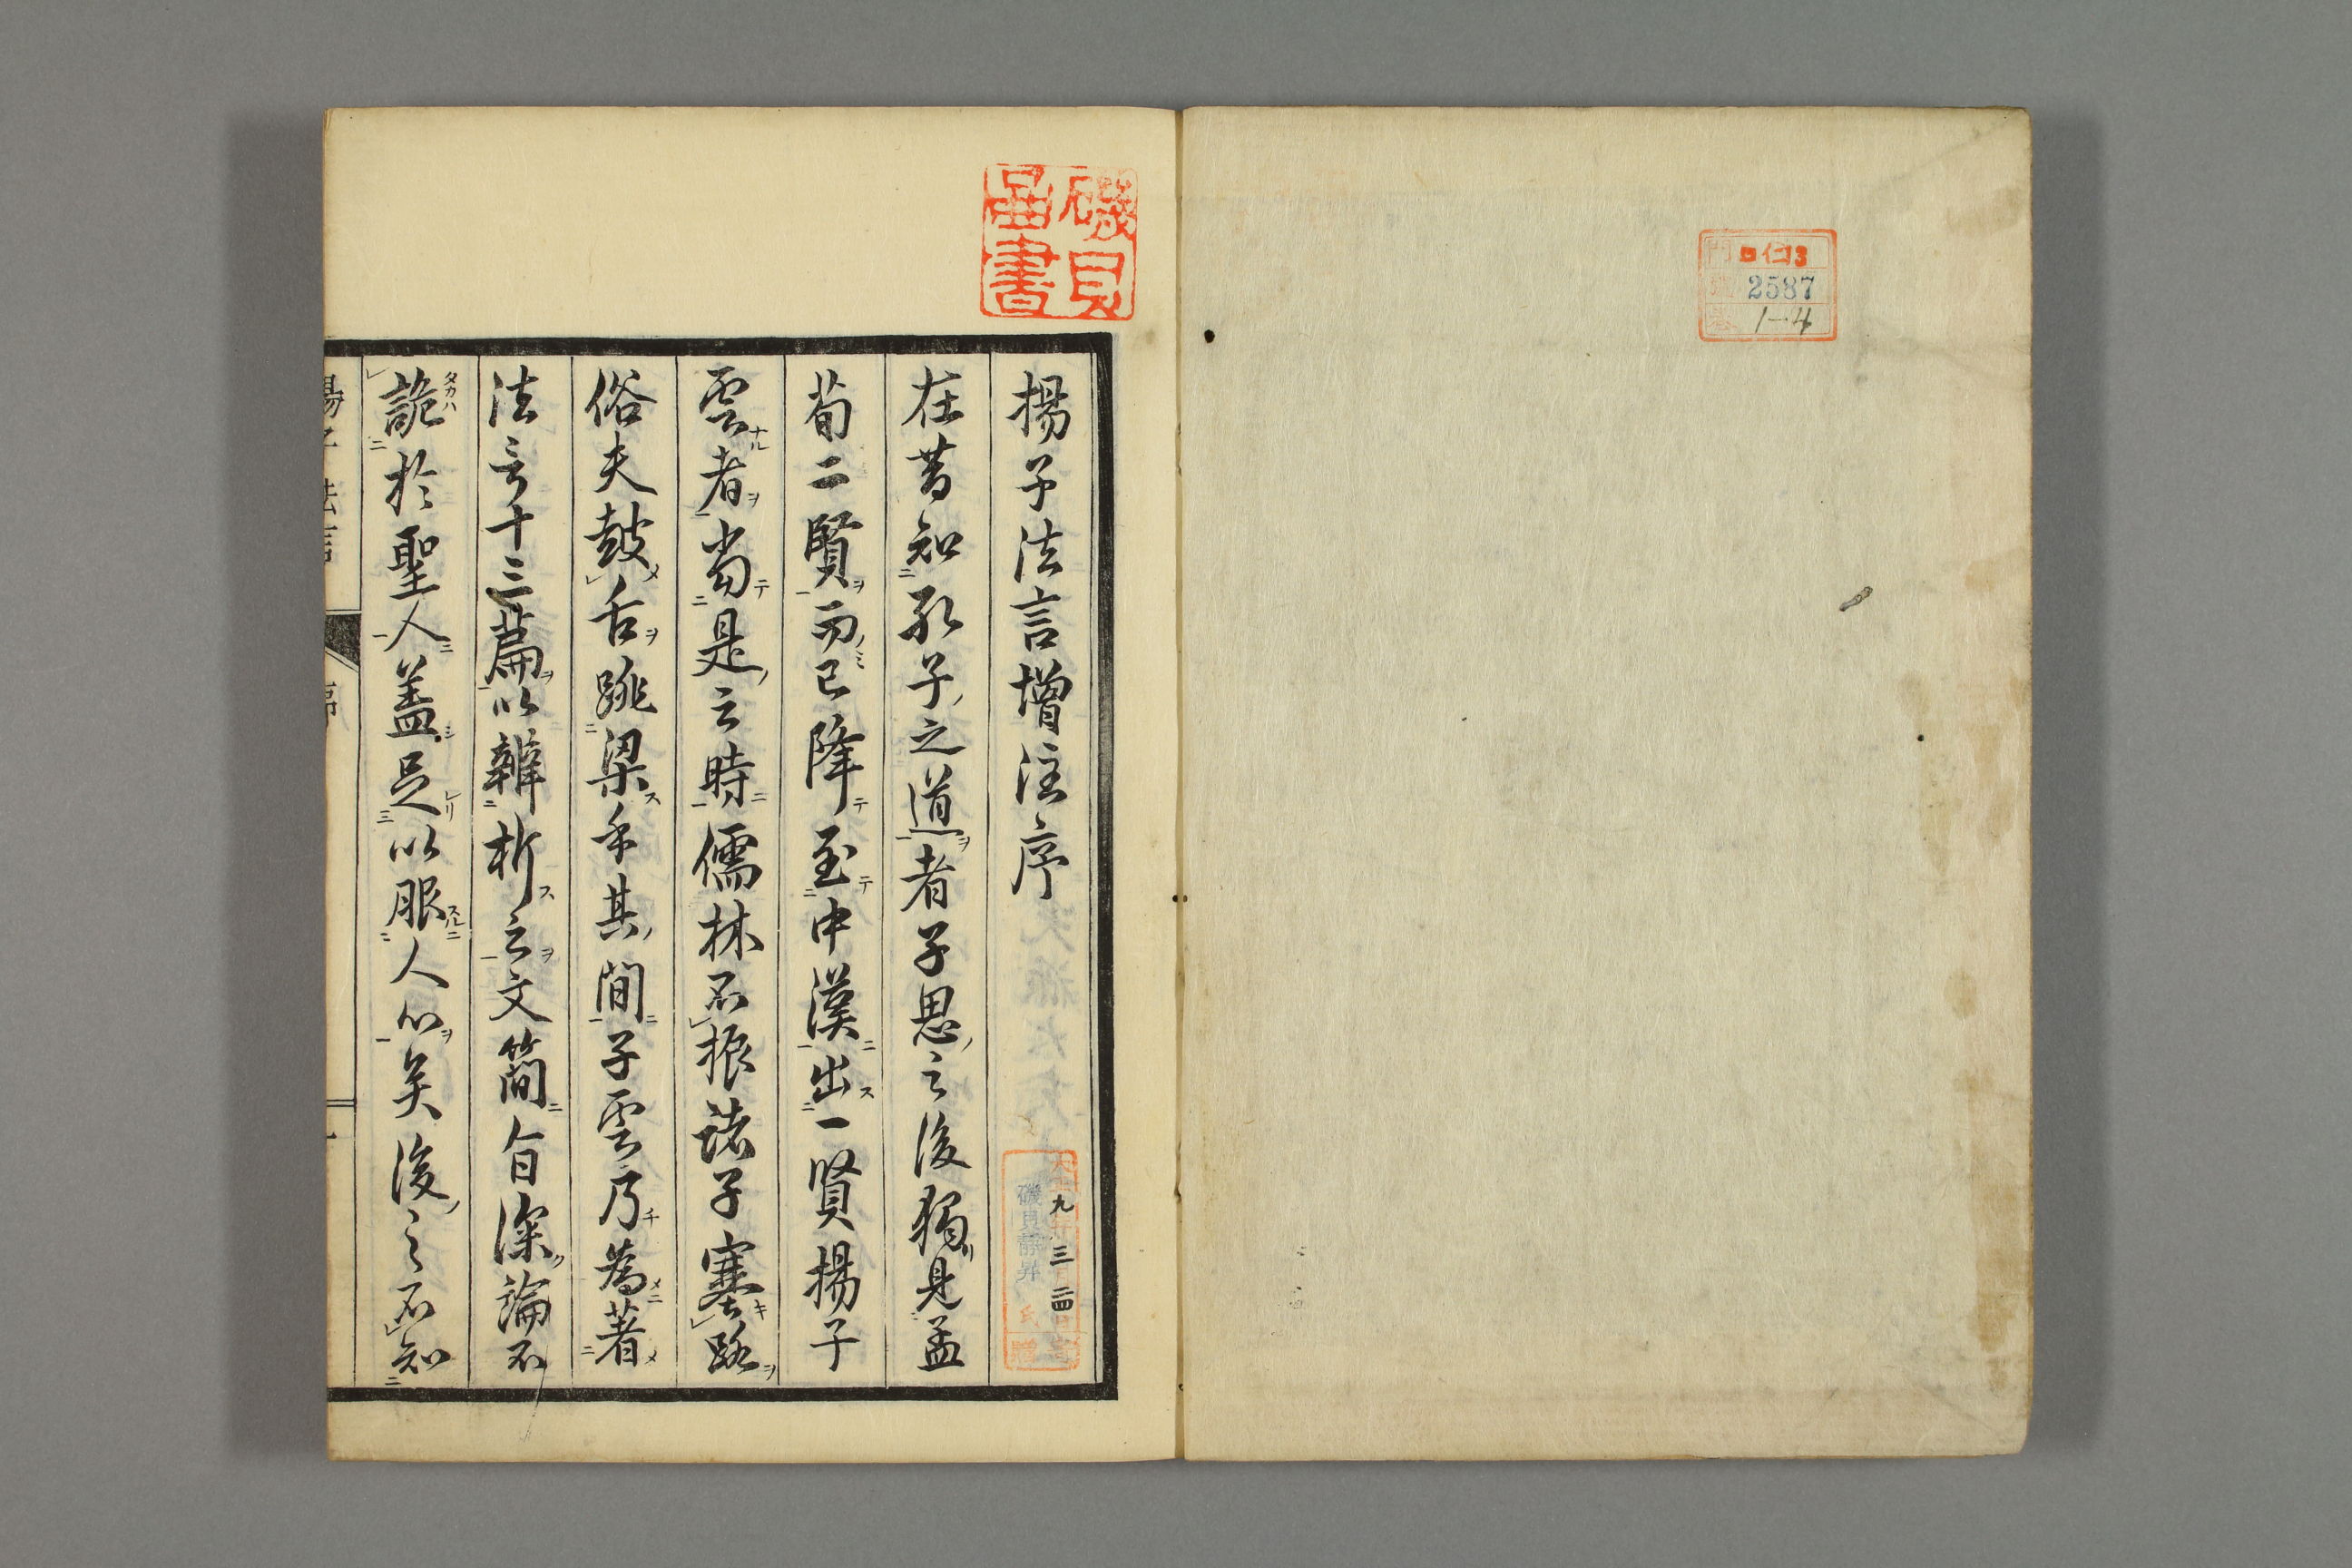 門 ロ仁3
號 2587
巻 1-4
磯貝
圖書
揚子法言增注序
在昔知孔子之道者子思之後獨見孟
荀二賢而已降至中漢出一賢揚子
雲者當是之時儒林不振諸子塞路
俗夫鼓舌跳梁乎其間子雲乃為著
法言十三篇以辨析之文簡旨深論不
詭於聖人蓋足以服人心矣後之不知
九 三 二四
揚子法言
序